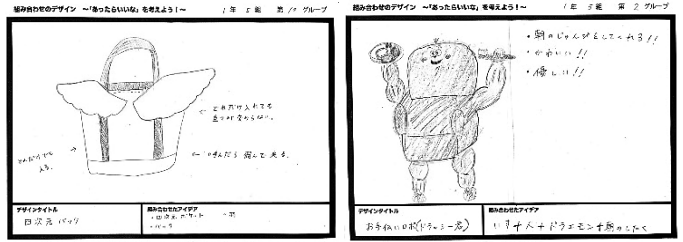 組み合わせのデザイン ～「あったらいいな」を考えよう！～ 1年 5組 第10グループ
← どれだけ入れても
重さが変わらない。
← 呼んだら 飛んで来る。
入る。
デザインタイトル
四次元 バッグ
組み合わせたアイデア
・四次元ポケット ・羽
・バッグ
組み合わせのデザイン ～「あったらいいな」を考えよう！～ 1年 3組 第2グループ
・朝のじゅんびをしてくれる!!
・かわいい!!
・優しい!!
デザインタイトル
お手伝いロボ(ドラ
組み合わせたアイデア
いす+人+ドラエモン+朝のしたく